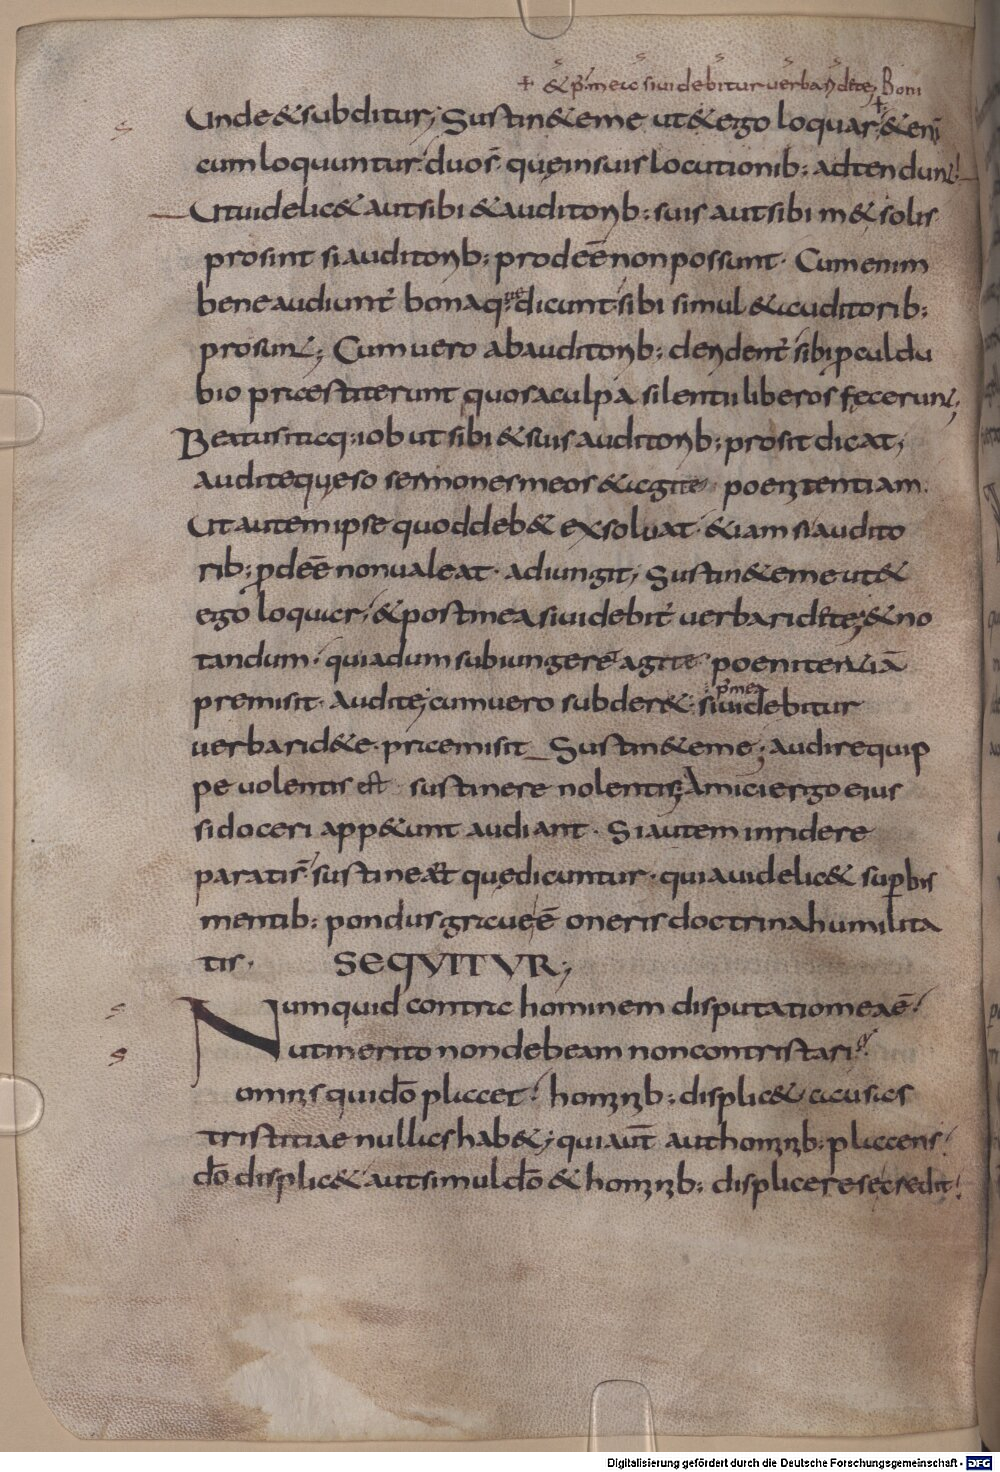 + & p' mea si uidebitur uerba ridete; Boni
Unde & subditur; Sustin&e me ut & ego loquar; & eni
cum loquuntur duos. quę in suis locutionib: adtendunt!
Ut uidelic& aut sibi & auditorib: suis aut sibi m& solis
prosint si auditorib: prodeē non possunt. Cum enim
bene audiunt' bona quę dicunt. sibi simul & auditorib:
prosunt; Cum uero ab auditorib: deridentᷣ sibi ꝓculdu
bio praestiterunt quos a culpa silentii liberos fecerunt;
Beatus itaq: iob ut sibi & suis auditorib: prosit dicat;
audite quęso sermones meos & agite poenitentiam.
Ut autem ipse quod deb& exsoluat. &iam si audito
rib: ꝓdeē non ualeat. adiungit; Sustin&e me ut &
ego loquar; & post mea si uidebit' uerba ridete; & no
tandum. quia dum subiungere agite poenitentiā
premisit. Audite; cum uero subder& si uidebitur
p' mea
uerba rid&e. praemisit Sustin&e me; audire quip
pe uolentis est sustinere nolentis; Amici ergo eius
si doceri app&unt audiant. Si autem inridere
parati s' sustineant quę dicuntur. quia uidelic& supbis
mentib: pondus graue ē oneris doctrina humilita
tis. SEQUITUR;
Numquid contra hominem disputatio mea ē!
ut merito non debeam non contristari?
omnis qui dō placet! hominib: displic& causas
tristitiae nullas hab&; qui aūt aut hominib: placens!
dō displic& aut simul dō & hominib: displicere se credit!
Digitalisierung gefördert durch die Deutsche Forschungsgemeinschaft - DFG